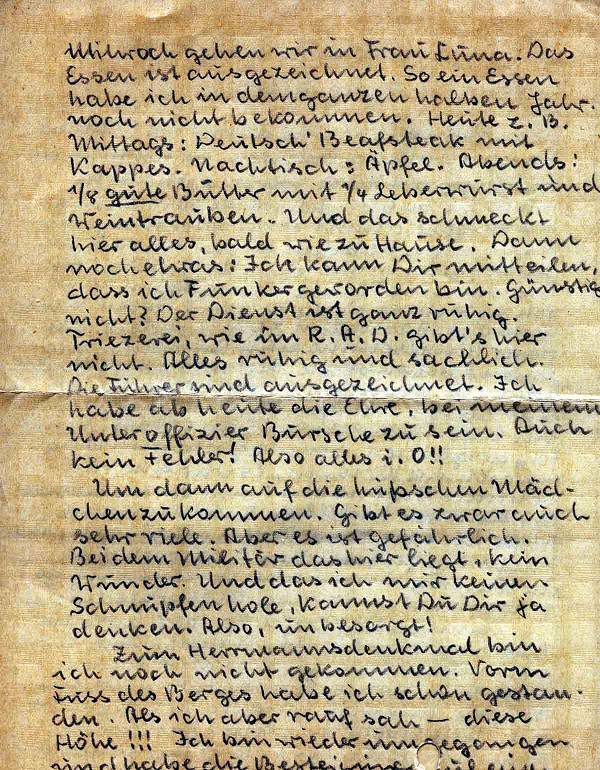 Mittwoch gehen wir in Frau Luna. Das
Essen ist ausgezeichnet. So ein Essen
habe ich in dem ganzen halben Jahr.
noch nicht bekommen. Heute z. B.
Mittags: Deutsch' Beafsteak mit
Kappes. Nachtisch: Äpfel. Abends:
1/8 gute Butter mit 1/4 Leberwurst und
Weintrauben. Und das schmeckt
hier alles, bald wie zu Hause. Dann
noch etwas: Ich kann Dir mitteilen,
dass ich Funker geworden bin. Günstig
nicht? Der Dienst ist ganz ruhig.
Triezerei, wie im R. A. D. gibt's hier
nicht. Alles ruhig und sachlich.
Die Führer sind ausgezeichnet. Ich
habe ab heute die Ehre, bei meinem
Unteroffizier Bursche zu sein. Auch
kein Fehler! Also alles i. O!!
Um dann auf die hüpschen Mäd-
chen zu kommen. Gibt es zwar auch
sehr viele. Aber es ist gefährlich.
Bei dem Militär das hier liegt, kein
Wunder. Und das ich mir keinen
Schnupfen hole, kannst Du Dir ja
denken. Also, unbesorgt!
Zum Herrmannsdenkmal bin
ich noch nicht gekommen. Vorm
Fuss des Berges habe ich schon gestan-
den. Als ich aber rauf sah – diese
Höhe!!! Ich bin wieder umgegangen
und habe die